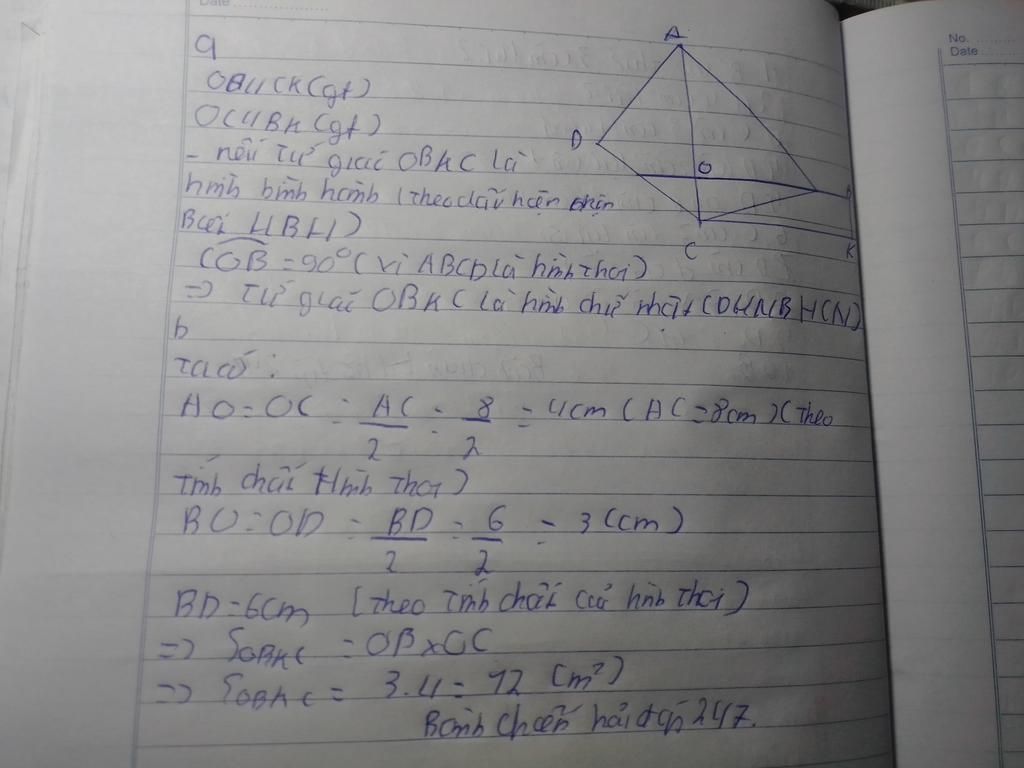 Date
No.
Date
a
OB//CK (gt)
OC//BK (gt)
- nếu Tứ giác OBKC là
hình bình hành (theo dấu hiệu nhận
Biết HBH)
COB = 90° (vì ABCD là hình thoi)
=> Tứ giác OBKC là hình chữ nhật (DHNBHCN)
b
Ta có:
AO = OC = AC/2 = 8/2 = 4cm (AC = 8cm) (theo
tính chất Hình thoi)
BO = OD = BD/2 = 6/2 = 3 (cm)
BD = 6cm (theo tính chất của hình thoi)
=> SOBKC = OB x OC
=> SOBKC = 3.4 = 12 (m²)
hỏi đáp 247.
A
D
O
B
C
K